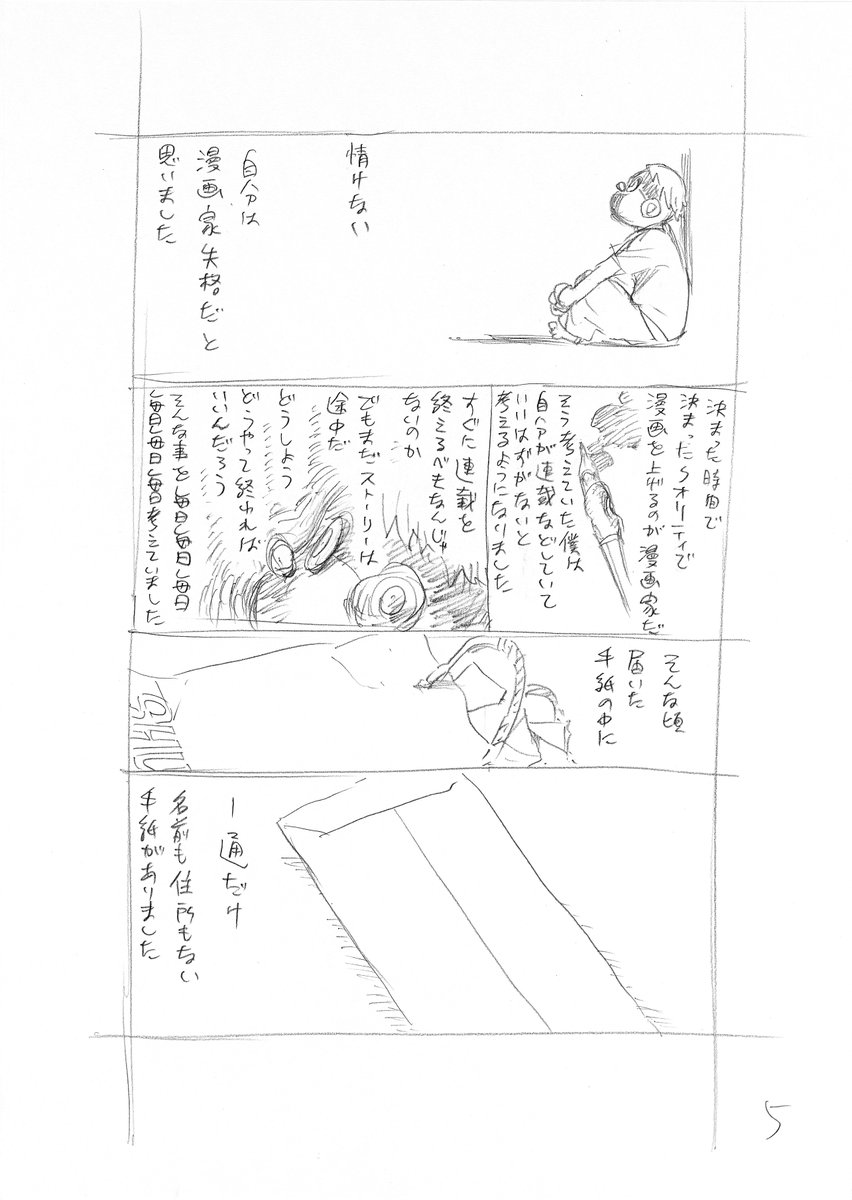 情けない
自分は
漫画家失格。だと
思いました
決まった時間で
決まったクオリティで
漫画を上げるのが漫画家だ
と
そう考えていた僕は
自分が連載などしていて
いいはずがないと
考えるようになりました
すぐに連載を
終えるべきなんじゃ
ないのか
でもまだストーリーは
途中だ
どうしよう
どうやって終われば
いいんだろう
そんな事を毎日毎日毎日
毎日毎日毎日考えていました
そんな頃
届いた
手紙の中に
一通だけ
名前も住所もない
手紙がありました
5